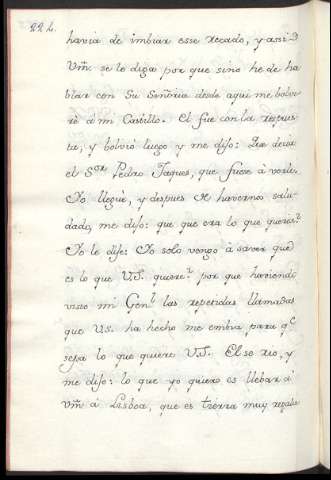 224.
havia de imbiar esse recado, y assi
Vm se lo diga por que sino he de ha
blar con Su Señoria desde aqui me bolve
rè à mi Castillo. El fue con la respues
ta, y bolviò luego y me dijo: Que decia
el Sor Pedro Jaques, que fuese à verle.
Yo lleguè, y despues de havernos salu
dado, me dijo: que que era lo que queria?
Yo le dije: Yo solo vengo à saver què
es lo que V.S. quiere? por que haviendo
visto mi Genl las repetidas llamadas
que V.S. ha hecho me embia para qe
sepa lo que quiere V.S. El se rio, y
me dijo: lo que yo quiero es llebar à
Vm à Lisboa, que es tierra muy regala